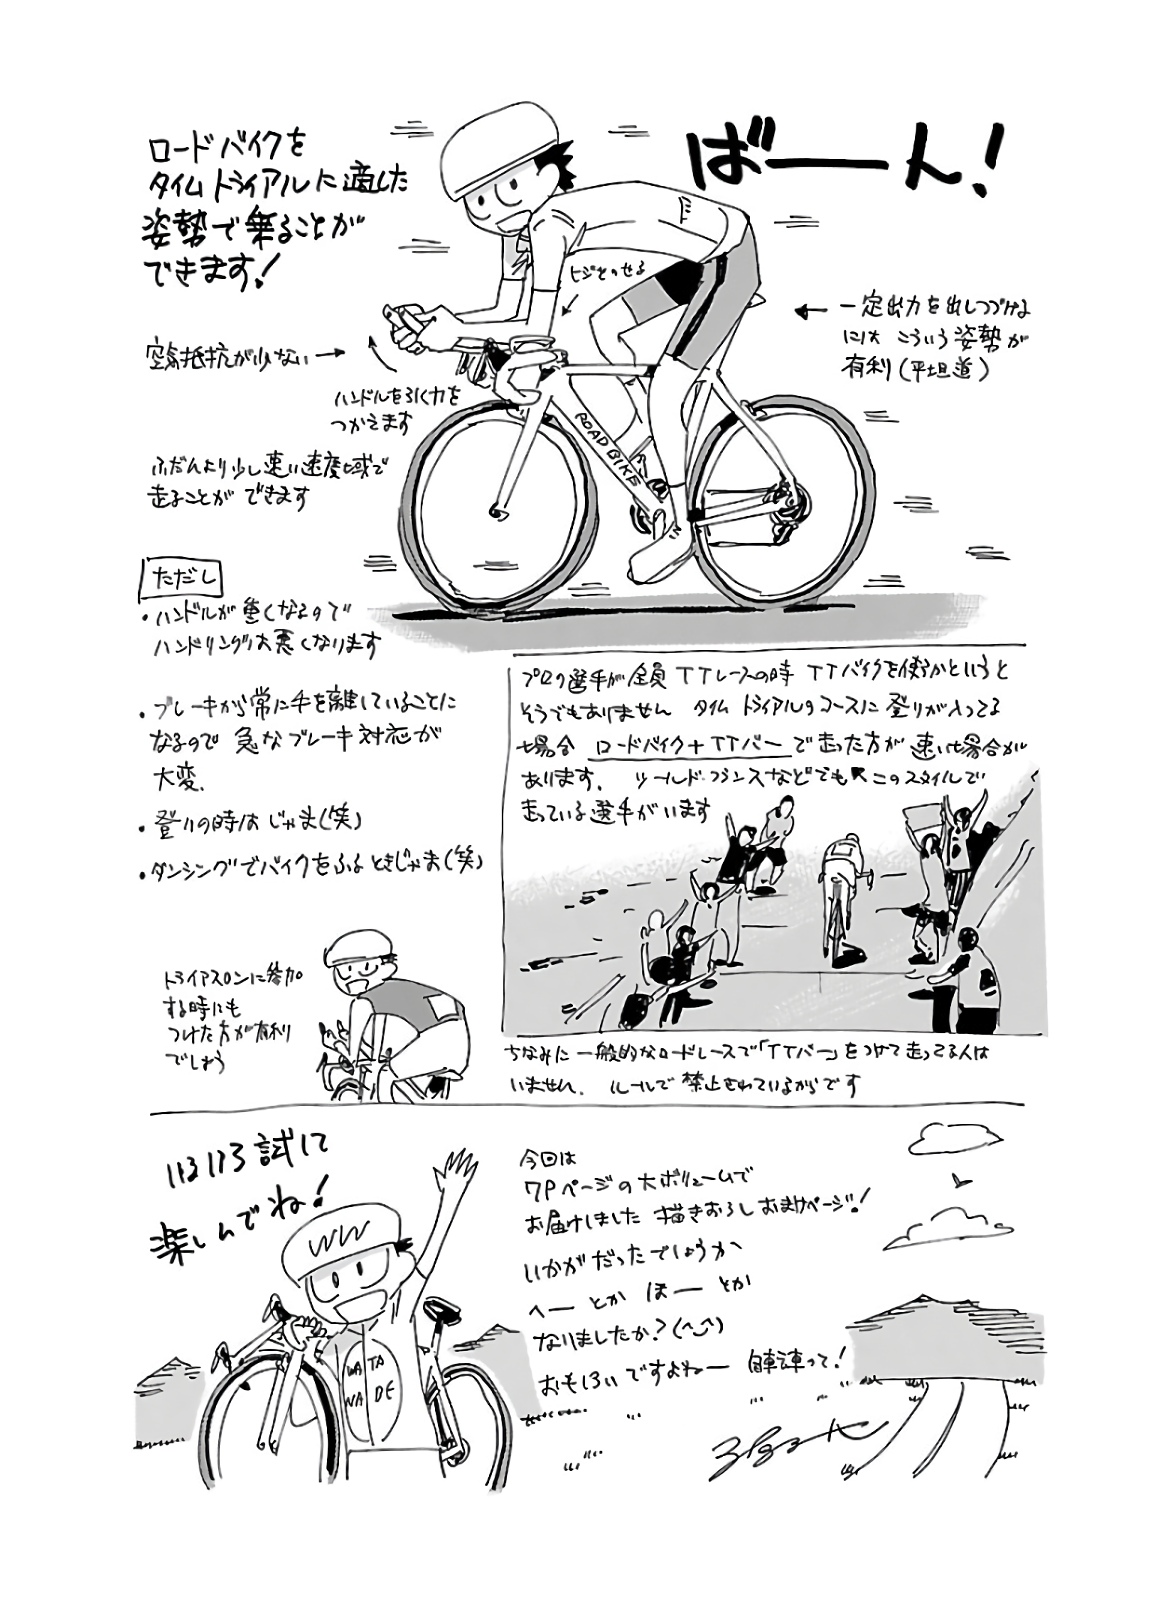 ロードバイクを
タイムトライアルに適した
姿勢で乗ることが
できます!
ばーーん!
ヒジをのせる
空気抵抗が少ない→
ハンドルを引く力を
つかえます
← 一定出力を出しつづける
には こういう姿勢が
有利(平坦道)
ふだんより少し速い速度域で
走ることが できます
ROAD BIKE
ただし
・ハンドルが重くなるので
ハンドリングは悪くなります
・ブレーキから常に手を離していることに
なるので 急なブレーキ対応が
大変.
・登りの時はじゃま(笑)
・ダンシングでバイクをふるときじゃま(笑)
プロの選手が全員 TTレースの時 TTバイクを使うかというと
そうでもありません タイムトライアルのコースに 登りが入ってる
場合 ロードバイク+TTバー で走った方が 速い場合が
あります. ツールドフランスなどでも このスタイルで
走っている選手がいます
トライアスロンに参加
する時にも
つけた方が有利
でしょう
ちなみに 一般的なロードレースで「TTバー」をつけて走ってる人は
いません. ルールで 禁止されているからです
いろいろ試して
楽しんでね!
WW
WATA
NADE
今回は
7Pページの大ボリュームで
お届けしました 描きおろし おまけページ!
いかがだったでしょうか
へー とか ほー とか
なりましたか?(^_^)
おもしろいですよねー 自転車って!